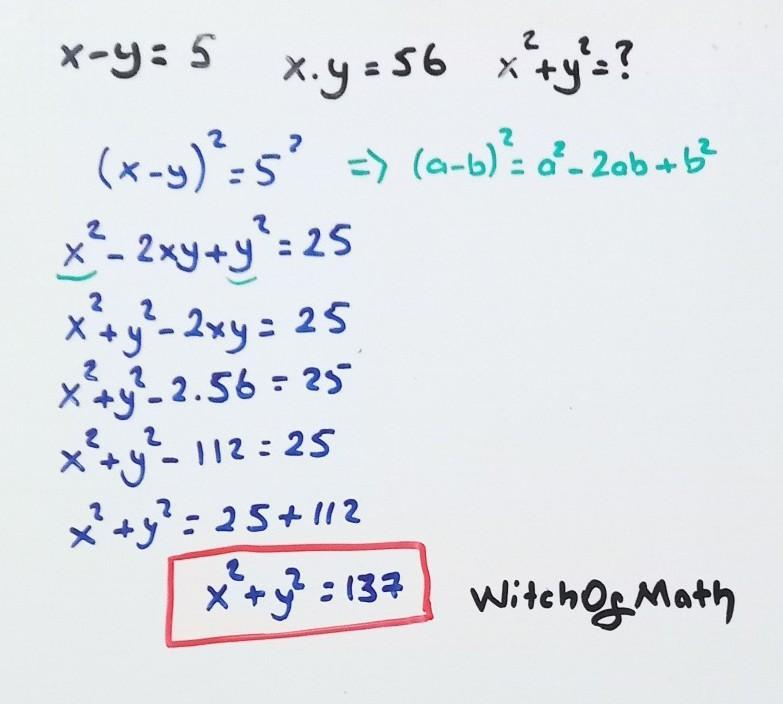 x-y=5 x.y=56 x²+y²=?
(x-y)²=5² => (a-b)²=a²-2ab+b²
x²-2xy+y²=25
x²+y²-2xy=25
x²+y²-2.56=25
x²+y²-112=25
x²+y²=25+112
x²+y²=137 WitchOfMath